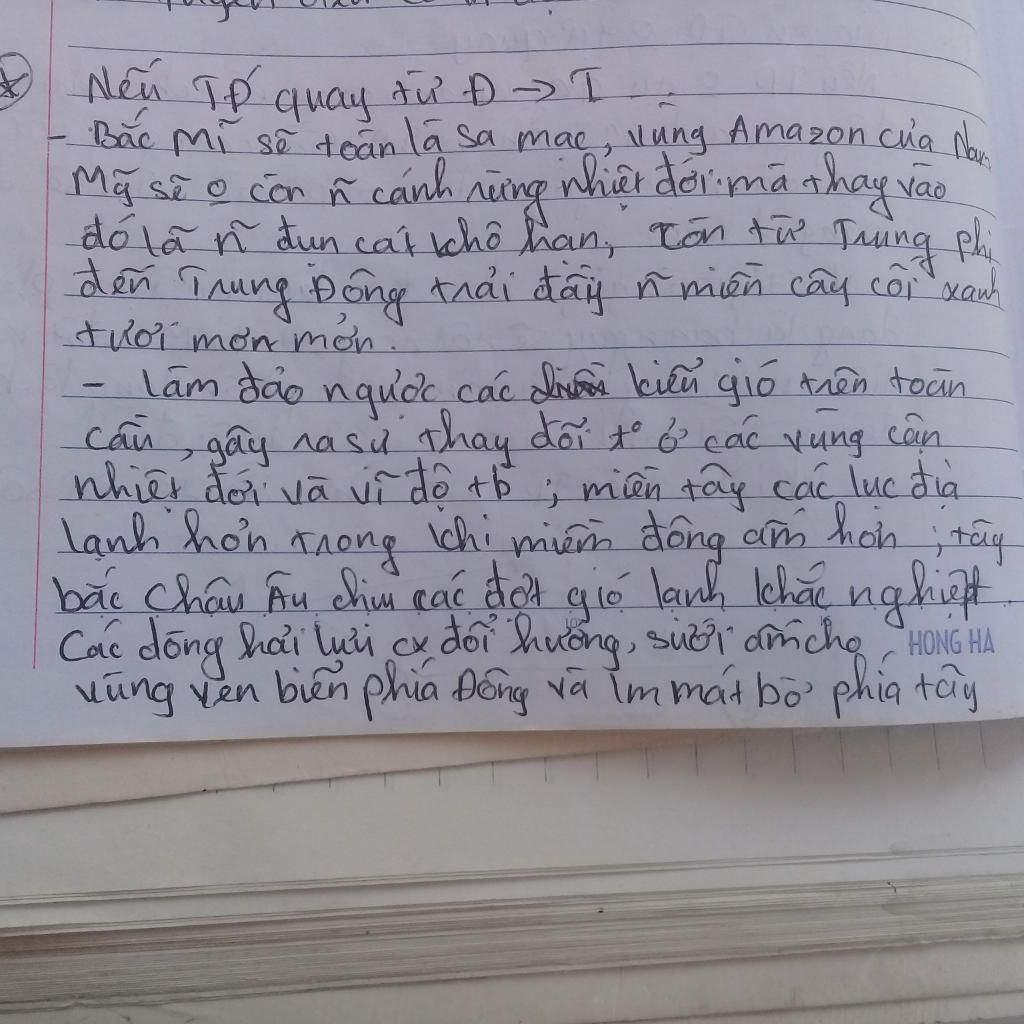 Nếu TĐ quay từ Đ → T
- Bắc Mĩ sẽ toàn là sa mạc, vùng Amazon của Nam
Mỹ sẽ o còn ñ cánh rừng nhiệt đới mà thay vào
đó là ñ đụn cát khô hạn, còn từ Trung phi
đến Trung Đông trải đầy ñ miền cây cối xanh
tươi mơn mởn.
- Làm đảo ngược các kiểu gió trên toàn
cầu, gây ra sự thay đổi t° ở các vùng cận
nhiệt đới và vĩ độ tb ; miền tây các lục địa
lạnh hơn trong khi miền đông ấm hơn ; tây
bắc Châu Âu chịu các đợt gió lạnh khắc nghiệt
Các dòng hải lưu cx đổi hướng, sưởi ấm cho
HONG HA
vùng ven biển phía Đông và lm mát bờ phía tây